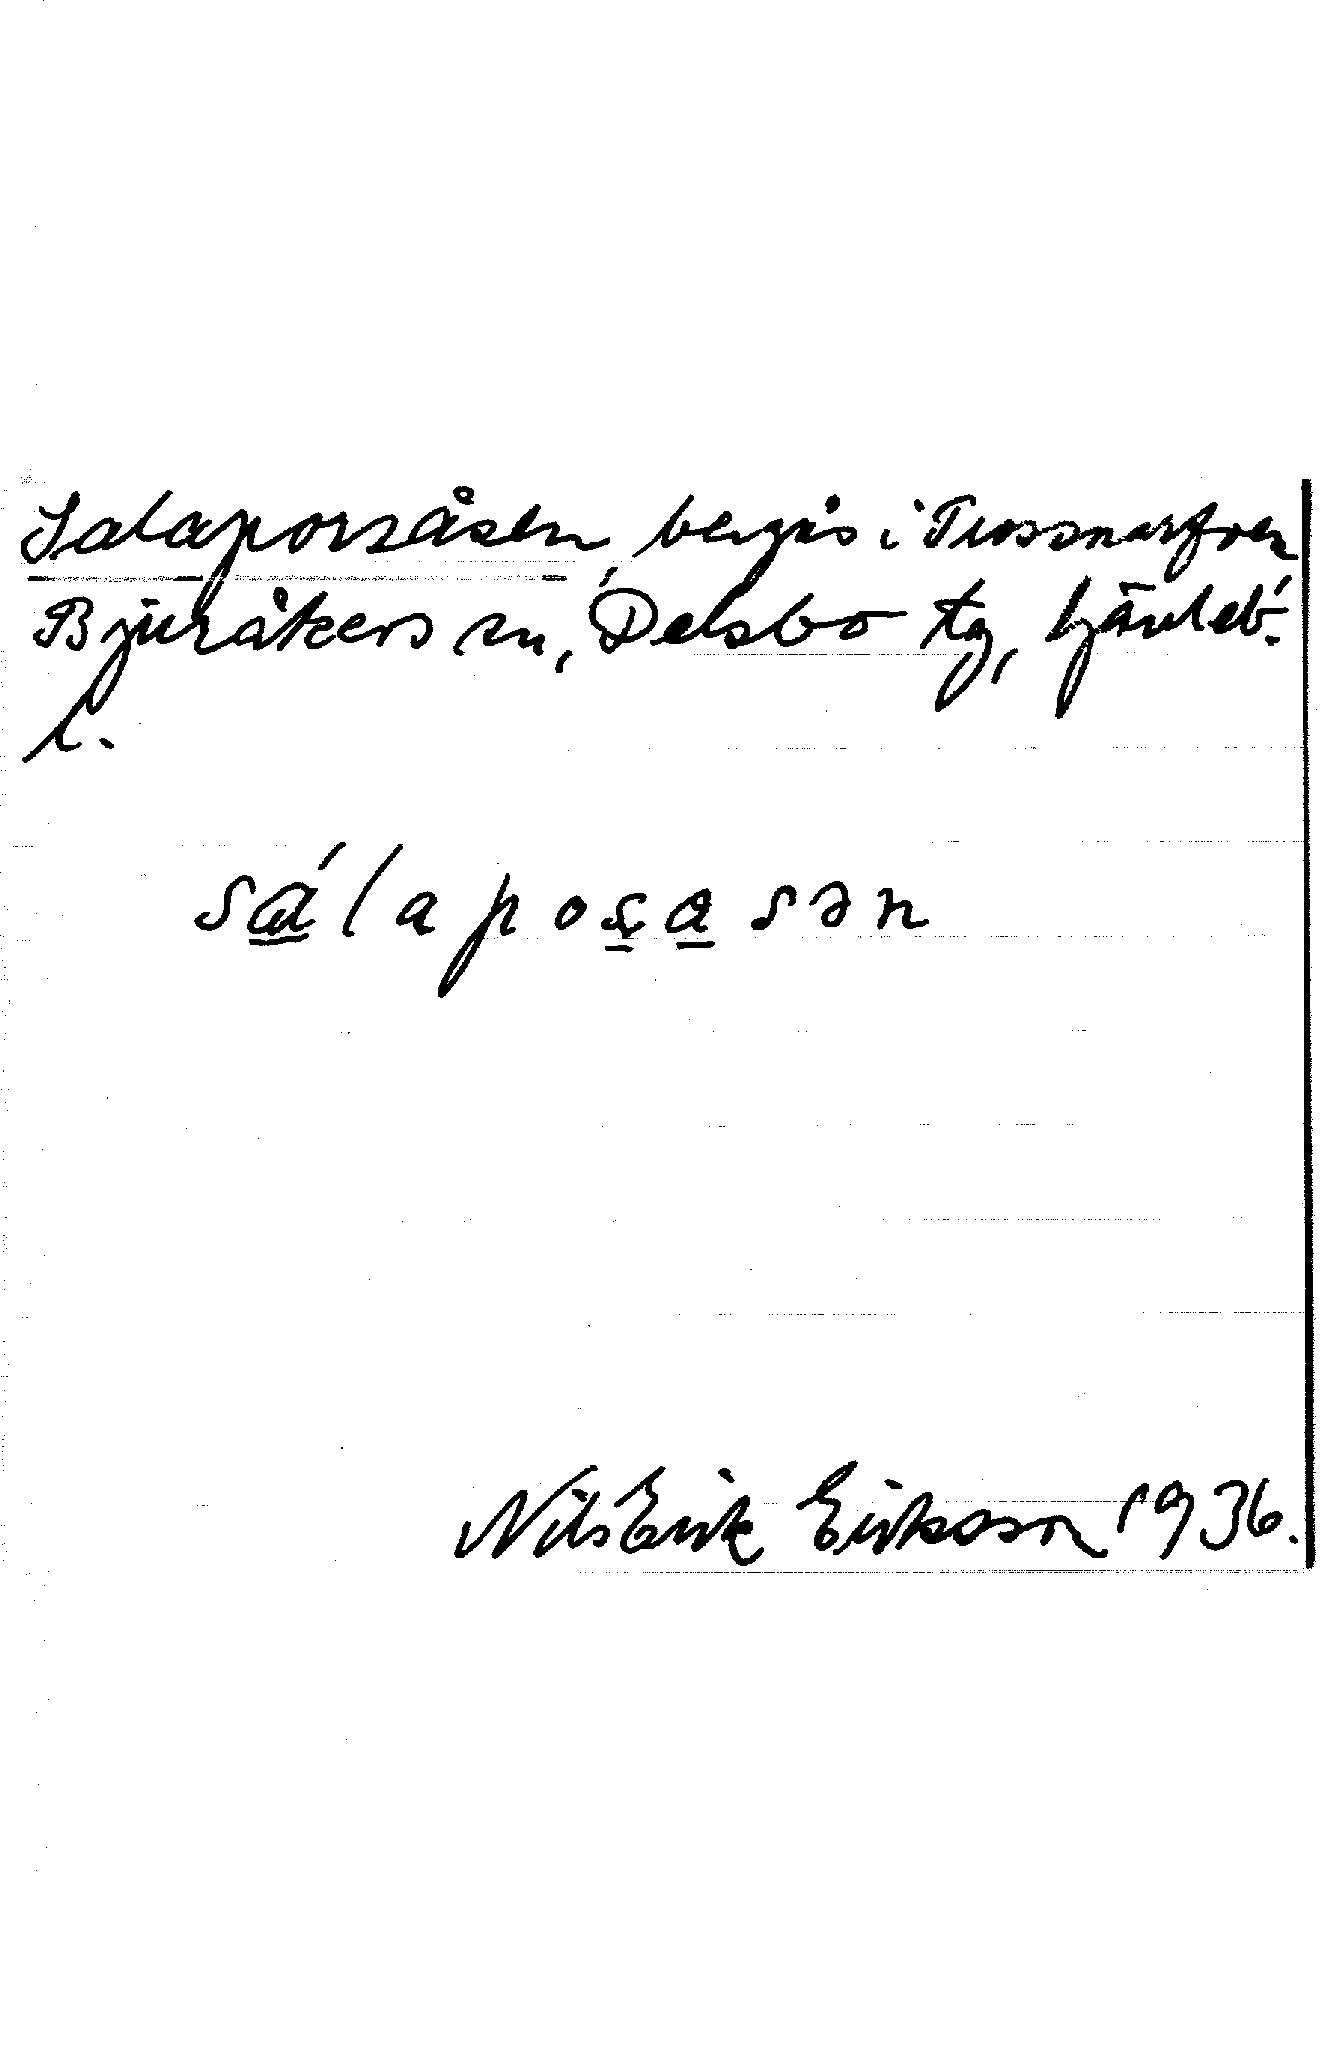 Salaporsåsen, bergås i Trossnarfven
Bjuråkers sn, Delsbo tg, Gävleb.
l.
sálaposasən
Nils Erik Eriksson 1936.